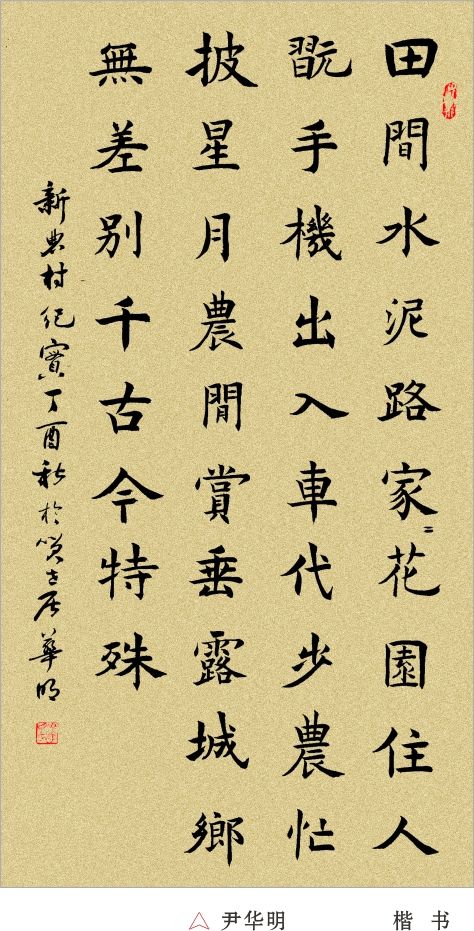 田間水泥路家〻花園住人
翫手機出入車代步農忙
披星月農閒賞垂露城鄉
無差別千古今特殊
新農村紀實丁酉秋於居華明
△ 尹华明 楷书